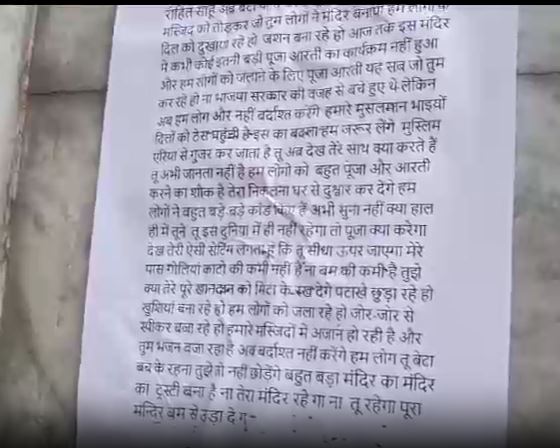 रोहित साहू अब बेटा
मस्जिद को तोड़कर जो तुम लोगों ने मंदिर बनाया हम लोगों के
दिल को दुखाया रहे हो जशन बना रहे हो आज तक इस मंदिर
मे कभी कोई इतनी बड़ी पूजा आरती का कार्यक्रम नहीं हुआ
और हम लोगों को जलाने के लिए पूजा आरती यह सब जो तुम
कर रहे हो ना भाजपा सरकार की वजह से बचे हुए थे लेकिन
अब हम लोग और नहीं बर्दाश्त करेंगे हमारे मुसलमान भाइयों
दिलों को ठेस पहुंची है इस का बदला हम जरूर लेंगे मुस्लिम
एरिया से गुजर कर जाता है तू अब देख तेरे साथ क्या करते हैं
तू अभी जानता नहीं है हम लोगो को बहुत पूजा और आरती
करने का शौक है तेरा निकलना घर से दुश्वार कर देगे हम
लोगों ने बहुत बड़े बड़े कांड किए हैं अभी सुना नहीं क्या हाल
ही में तूने तू इस दुनिया में ही नही रहेगा तो पूजा क्या करेगा
देख तेरी ऐसी सेटिंग लगता हू कि तू सीधा ऊपर जाएगा मेरे
पास गोलियां काटो की कमी नहीं है ना बम की कमी है तुझे
क्या तेरे पूरे खानदान को मिटा के रख देगे पटाखे छुड़ा रहे हो
खुशियां बना रहे हो हम लोगों को जला रहे हो जोर-जोर से
स्पीकर बजा रहे हो हमारे मस्जिदों मे अजान हो रही है और
तुम भजन वजा रहा है अब बर्दाश्त नहीं करेंगे हम लोग तू बेटा
बच के रहना तुझे तो नहीं छोड़ेंगे बहुत बड़ा मंदिर का मंदिर
का ट्रस्टी बना है ना तेरा मंदिर रहे गा ना तू रहेगा पूरा
मन्दिर बम से उड़ा दे